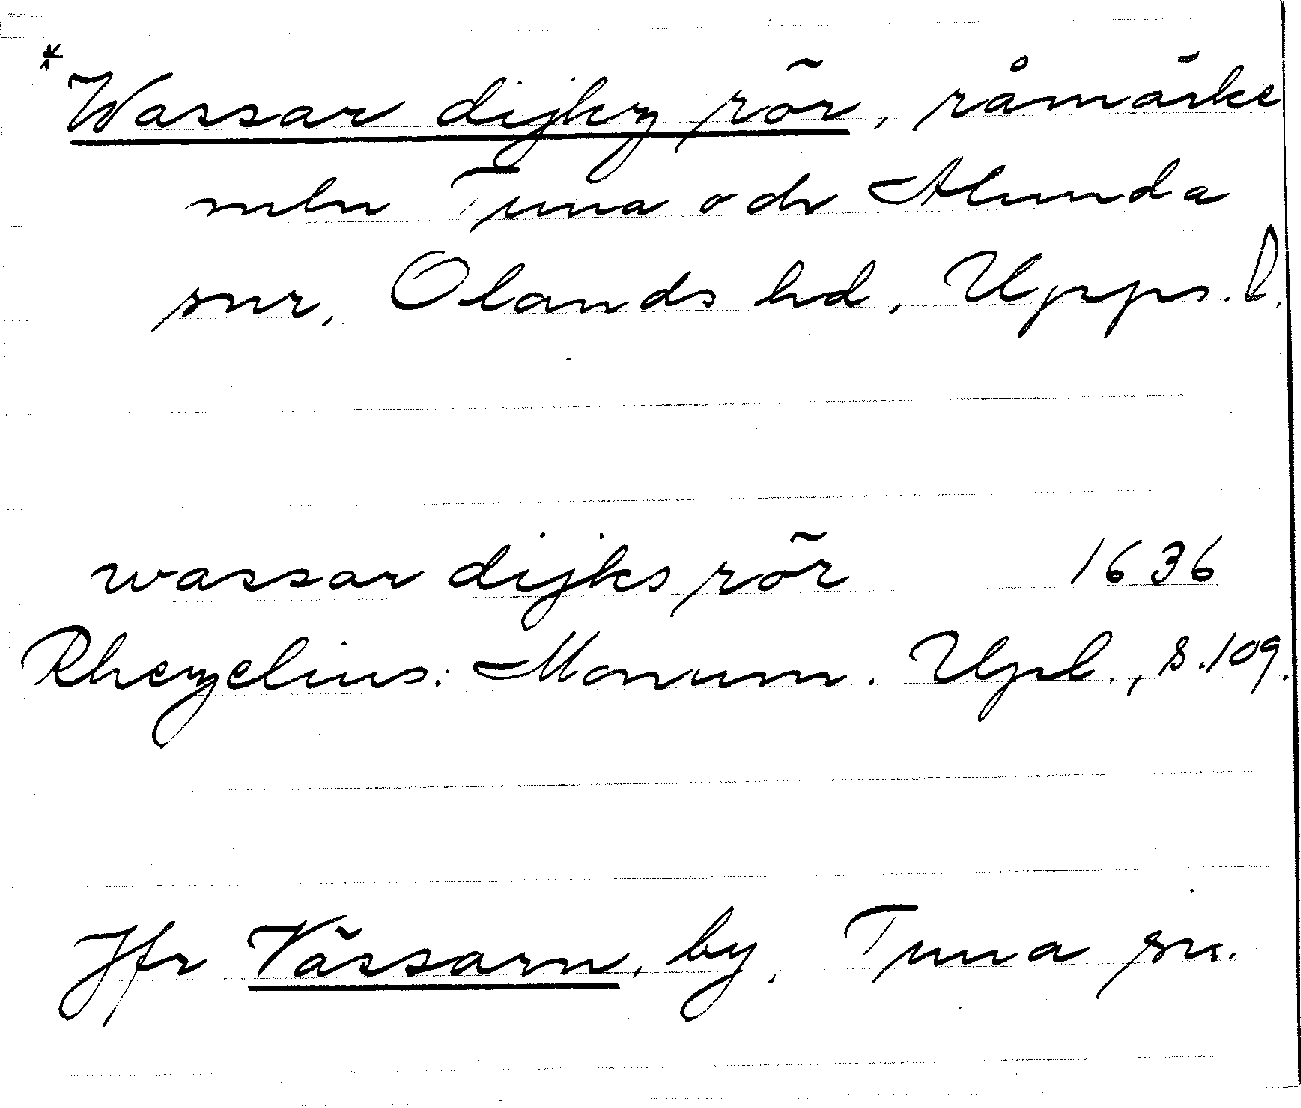 *Wassar dijkz rör, råmärke
mln Tuna och Alunda
snr, Olands hd, Upps. l.
wassar dijks rör 1636
Rhezelius: Monum. Upl., s. 109.
Jfr Vässarn, by, Tuna sn.